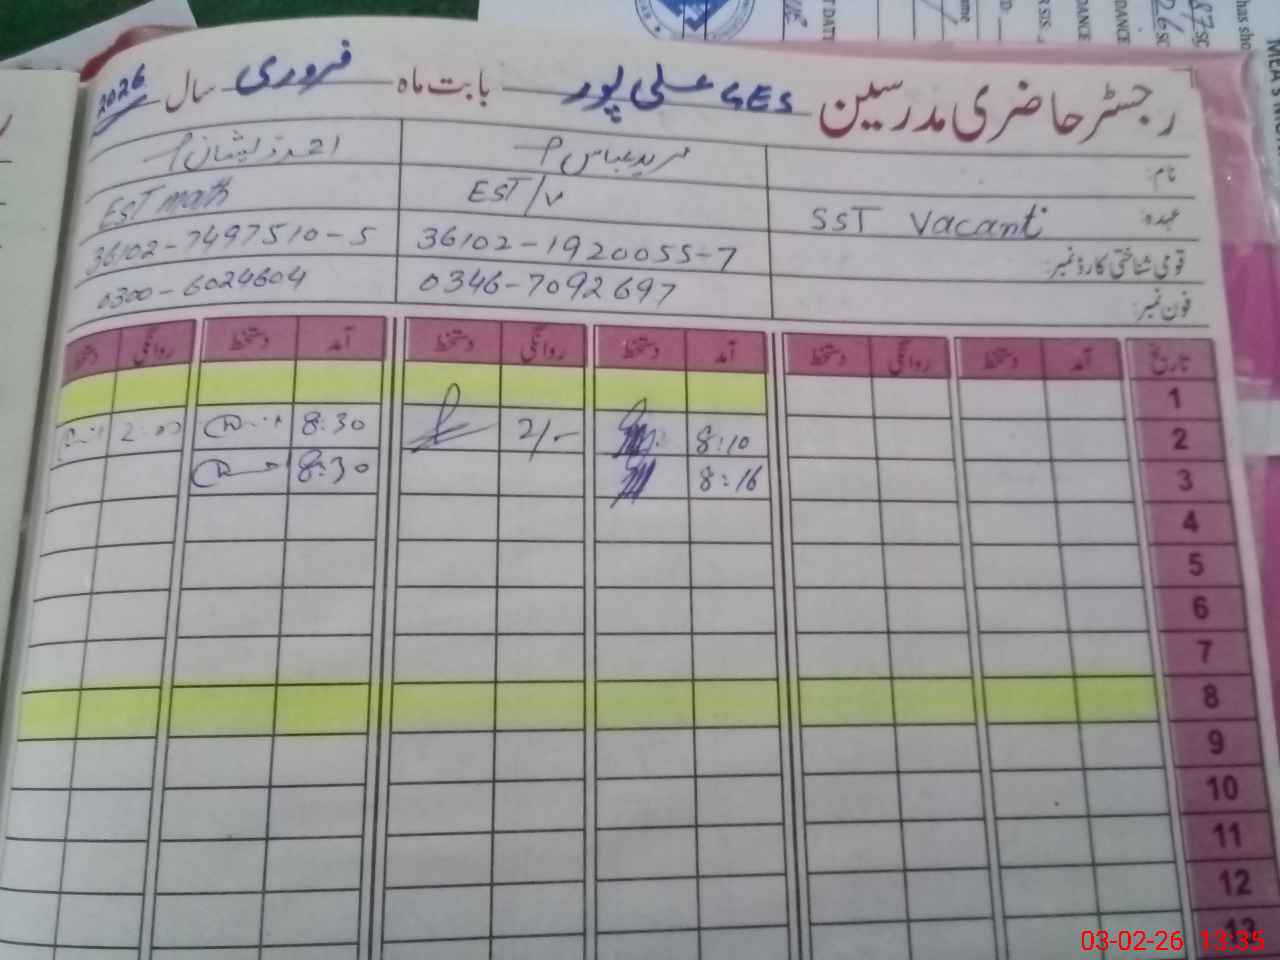 رجسٹر حاضری مدرسین GES علی پور بابت ماہ فروری سال 2026
نام: مرید عباس احمد ذیشان
عہدہ: SST Vacant EST/V EST math
قومی شناختی کارڈ نمبر: 36102-1920055-7 36102-7497510-5
فون نمبر: 0346-7092697 0300-6024604
تاریخ آمد دستخط روانگی دستخط آمد دستخط روانگی دستخط آمد دستخط روانگی دستخط
1
2 8:10 2/- 8:30 2:00
3 8:16 8:30
4
5
6
7
8
9
10
11
12
13
03-02-26 13:35